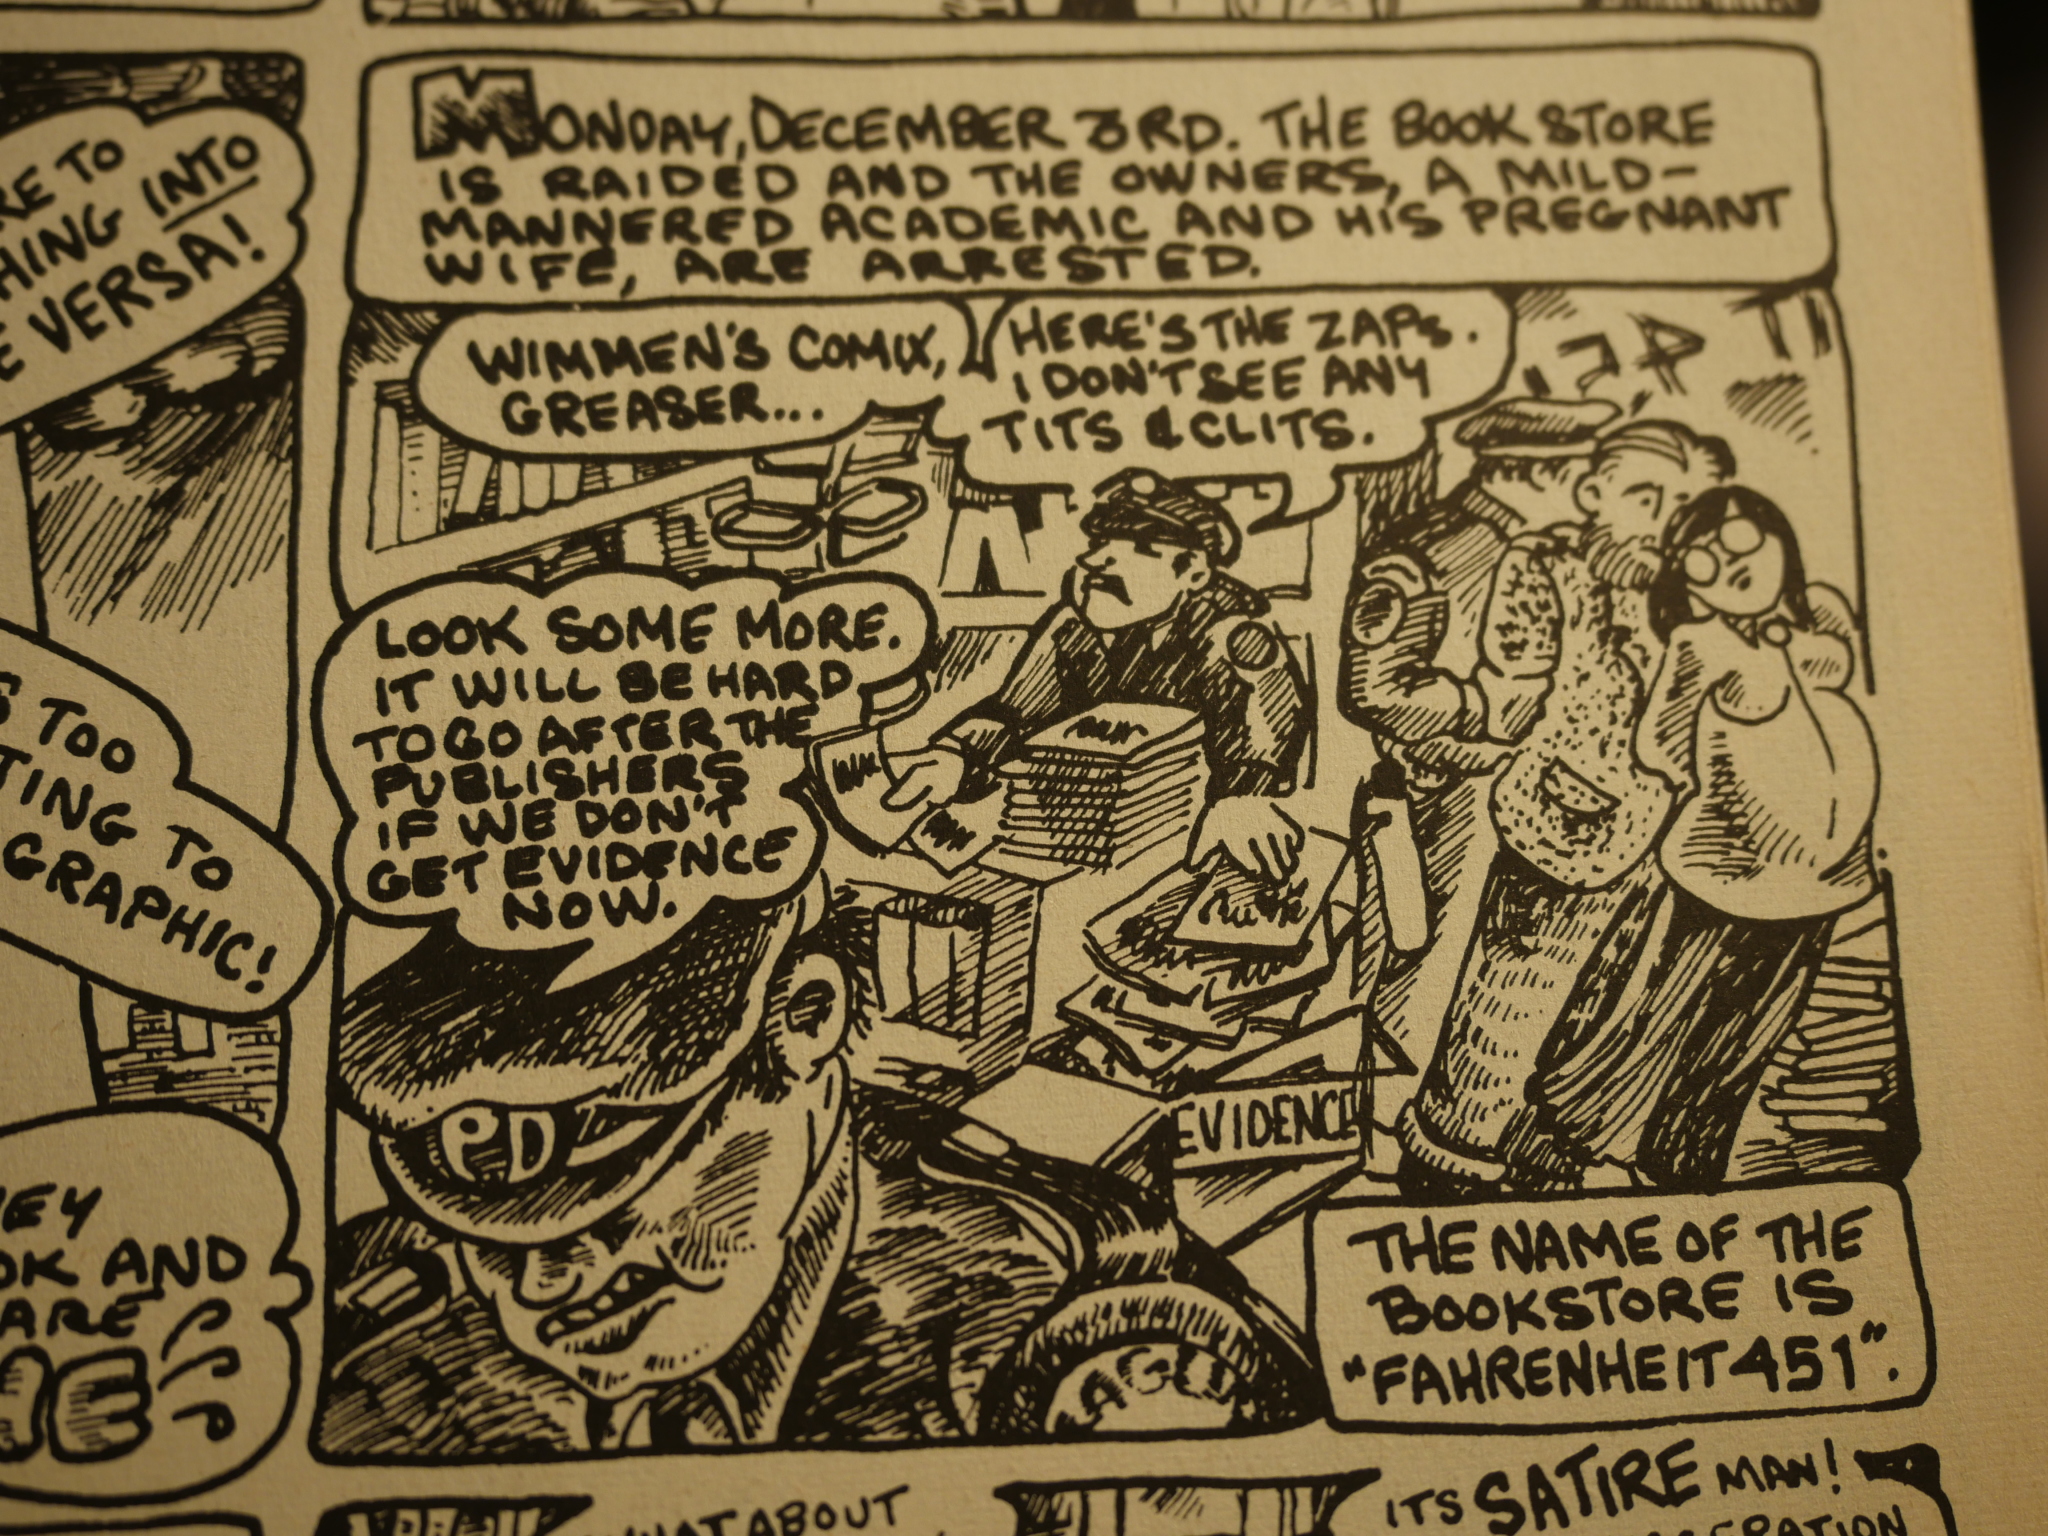 MONDAY, DECEMBER 3RD. THE BOOK STORE
IS RAIDED AND THE OWNERS, A MILD-
MANNERED ACADEMIC AND HIS PREGNANT
WIFE, ARE ARRESTED.
WIMMEN'S COMIX,
GREASER...
HERE'S THE ZAPS.
I DON'T SEE ANY
TITS & CLITS.
LOOK SOME MORE.
IT WILL BE HARD
TO GO AFTER THE
PUBLISHERS
IF WE DON'T
GET EVIDENCE
NOW.
PD
EVIDENCE
THE NAME OF THE
BOOKSTORE IS
"FAHRENHEIT 451".
RE TO
HING INTO
E VERSA!
S TOO
TING TO
GRAPHIC!
EY
OK AND
ARE
WHAT ABOUT
ITS SATIRE MAN!